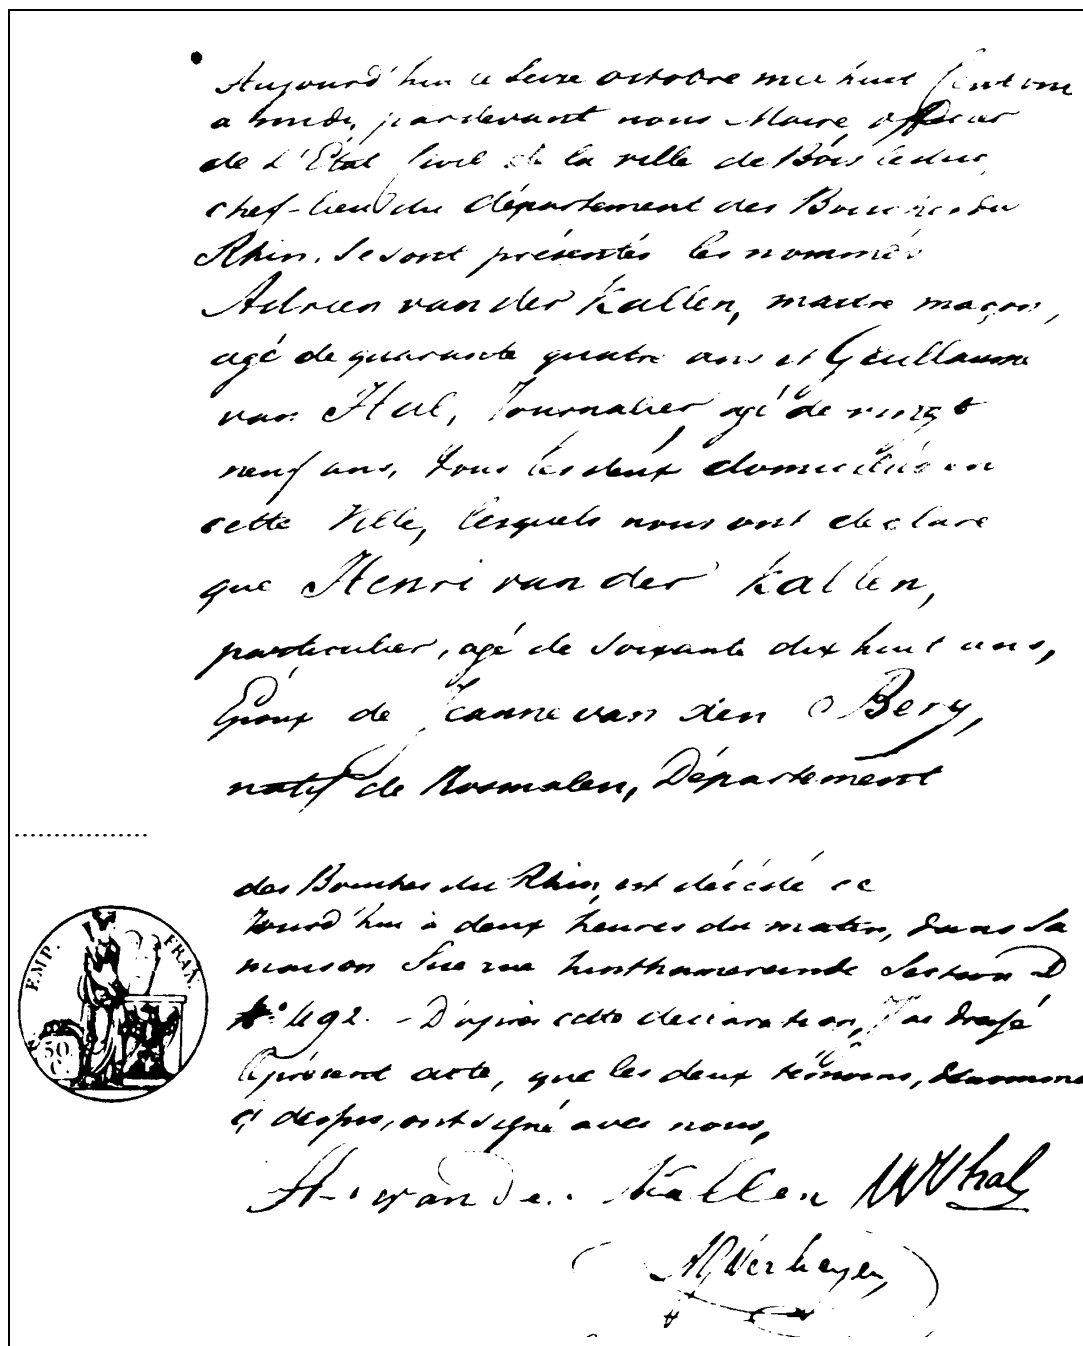 Aujourd'hui le Seize octobre mil huit Cent onze
a midi, pardevant nous Maire, officier
de l'État Civil de la ville de Bois le duc,
chef-lieu du département des Bouches du
Rhin. Se sont présentés les nommés
Adrien van der Kallen, maitre maçon,
agé de quarante quatre ans et Guillaume
van Hal, Journalier, agé de vingt
neuf ans, tous les deux domiciliés en
cette Ville, lesquels nous ont declare
que Henri van der Kallen,
particulier, agé de soixante dix huit ans,
Epoux de Jeanne van den Berg,
natif de Rosmalen, Département
des Bouches du Rhin, est décédé ce
Jourd'hui à deux heures du matin, dans sa
maison Sise rue hinthamereinde Section D
N.° 492. - D'après cette declaration, J'ai dressé
le présent acte, que les deux témoins, denommés
ci dessus, ont signé avec nous,
A. van der Kallen WVhal
AGVerheyen
EMP. FRAN.
50
C.